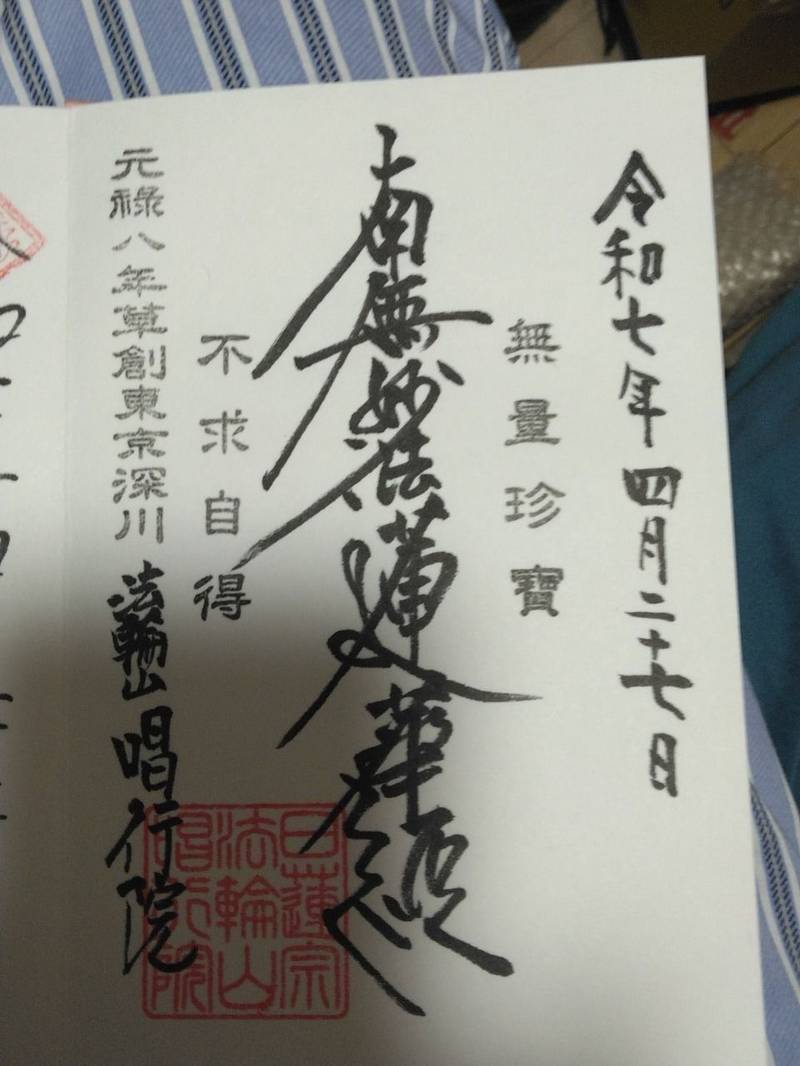 令和七年四月二十七日
無量珍寶
南無妙法蓮華経
不求自得
元祿八年草創東京深川
法輪山 唱行院
日蓮宗
法輪山
唱行院